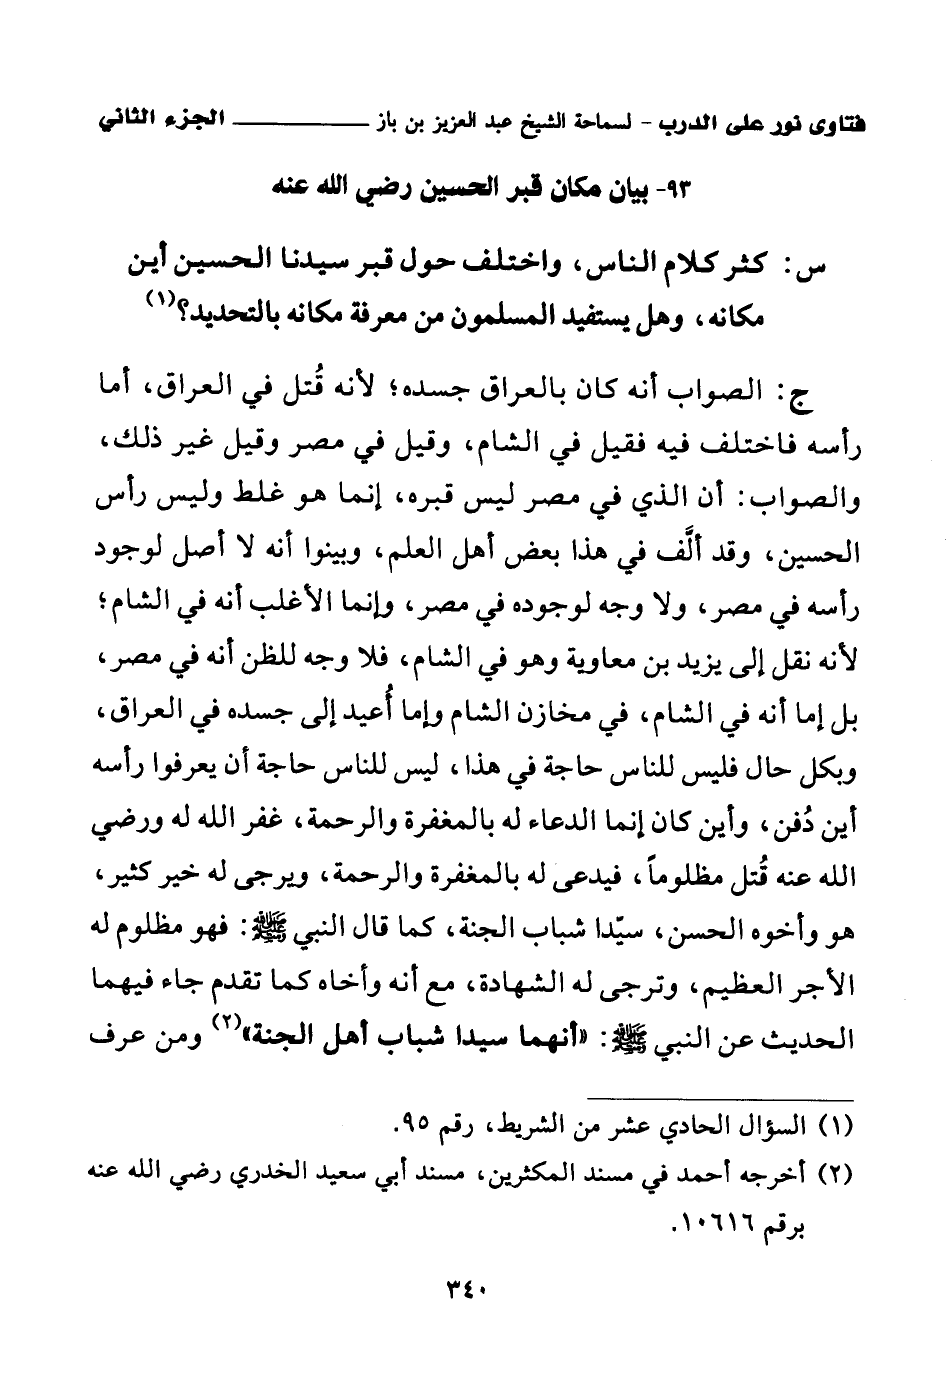 فتاوى نور على الدرب - لسماحة الشيخ عبد العزيز بن باز ــــــــــــ الجزء الثاني
٩٣- بيان مكان قبر الحسين رضي الله عنه
س: كثر كلام الناس، واختلف حول قبر سيدنا الحسين أين
مكانه، وهل يستفيد المسلمون من معرفة مكانه بالتحديد؟(١)
ج: الصواب أنه كان بالعراق جسده؛ لأنه قُتل في العراق، أما
رأسه فاختلف فيه فقيل في الشام، وقيل في مصر وقيل غير ذلك،
والصواب: أن الذي في مصر ليس قبره، إنما هو غلط وليس رأس
الحسين، وقد ألَّف في هذا بعض أهل العلم، وبينوا أنه لا أصل لوجود
رأسه في مصر، ولا وجه لوجوده في مصر، وإنما الأغلب أنه في الشام؛
لأنه نقل إلى يزيد بن معاوية وهو في الشام، فلا وجه للظن أنه في مصر،
بل إما أنه في الشام، في مخازن الشام وإما أُعيد إلى جسده في العراق،
وبكل حال فليس للناس حاجة في هذا، ليس للناس حاجة أن يعرفوا رأسه
أين دُفن، وأين كان إنما الدعاء له بالمغفرة والرحمة، غفر الله له ورضي
الله عنه قُتل مظلوماً، فيدعى له بالمغفرة والرحمة، ويرجى له خير كثير،
هو وأخوه الحسن، سيّدا شباب الجنة، كما قال النبي ﷺ: فهو مظلوم له
الأجر العظيم، وترجى له الشهادة، مع أنه وأخاه كما تقدم جاء فيهما
الحديث عن النبي ﷺ: «أنهما سيدا شباب أهل الجنة»(٢) ومن عرف
(١) السؤال الحادي عشر من الشريط، رقم ٩٥.
(٢) أخرجه أحمد في مسند المكثرين، مسند أبي سعيد الخدري رضي الله عنه
برقم ١٠٦١٦.
٣٤٠